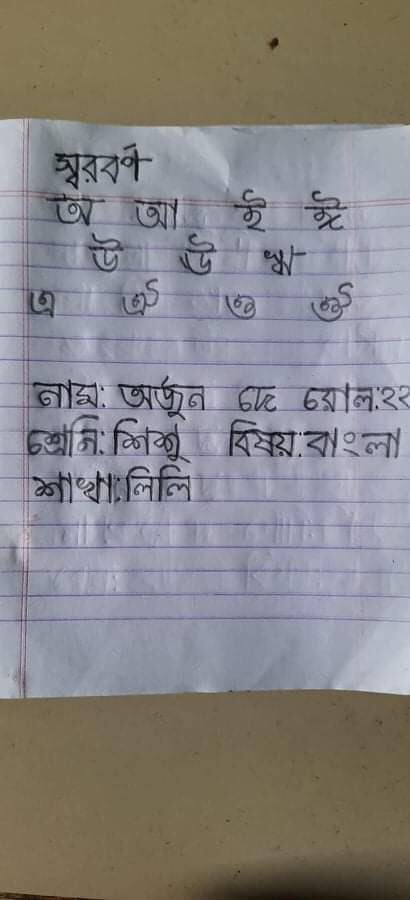 স্বরবর্ণ
অ আ ই ঈ
উ ঊ ঋ
এ ঐ ও ঔ
নাম: অর্জুন দে রোল:২২
শ্রেনি: শিশু বিষয়:বাংলা
শাখা:লিলি